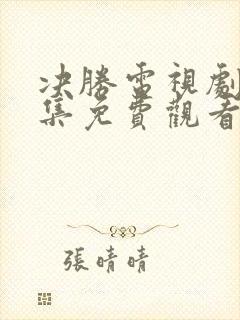 决勝雷視劇
集免費觀看
張晴晴